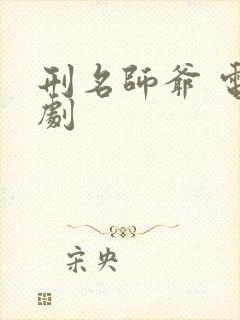 刑名師爺 電
劇
宋央